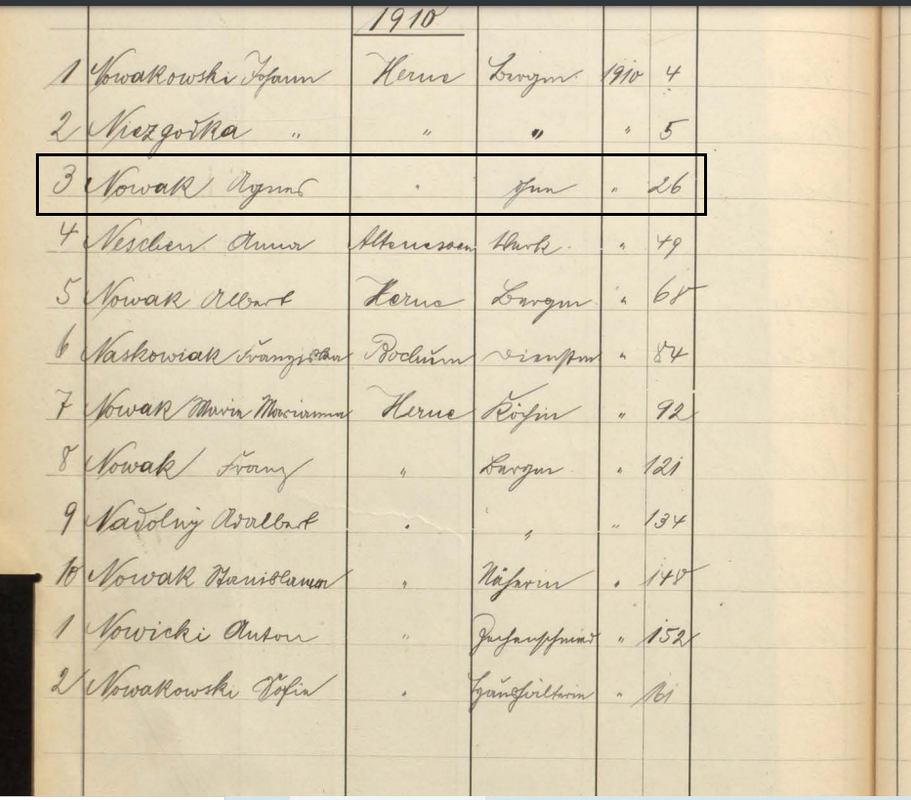 1910
1 Nowakowski Johann Herne Bergm. 1910 4
2 Niezgodka " " " " 5
3 Nowak Agnes " ohne " 26
4 Neschen Anna Altenessen Verk. " 49
5 Nowak Albert Herne Bergm " 68
6 Naskowiak Franziska Bochum Dienstm " 84
7 Nowak Maria Marianna Herne Köchin " 92
8 Nowak Franz " Bergm " 121
9 Nadolny Adalbert " " " 134
10 Nowak Stanislawa " Näherin " 148
1 Nowicki Anton " Zechenschmied " 152
2 Nowakowski Sofie " Haushälterin " 161